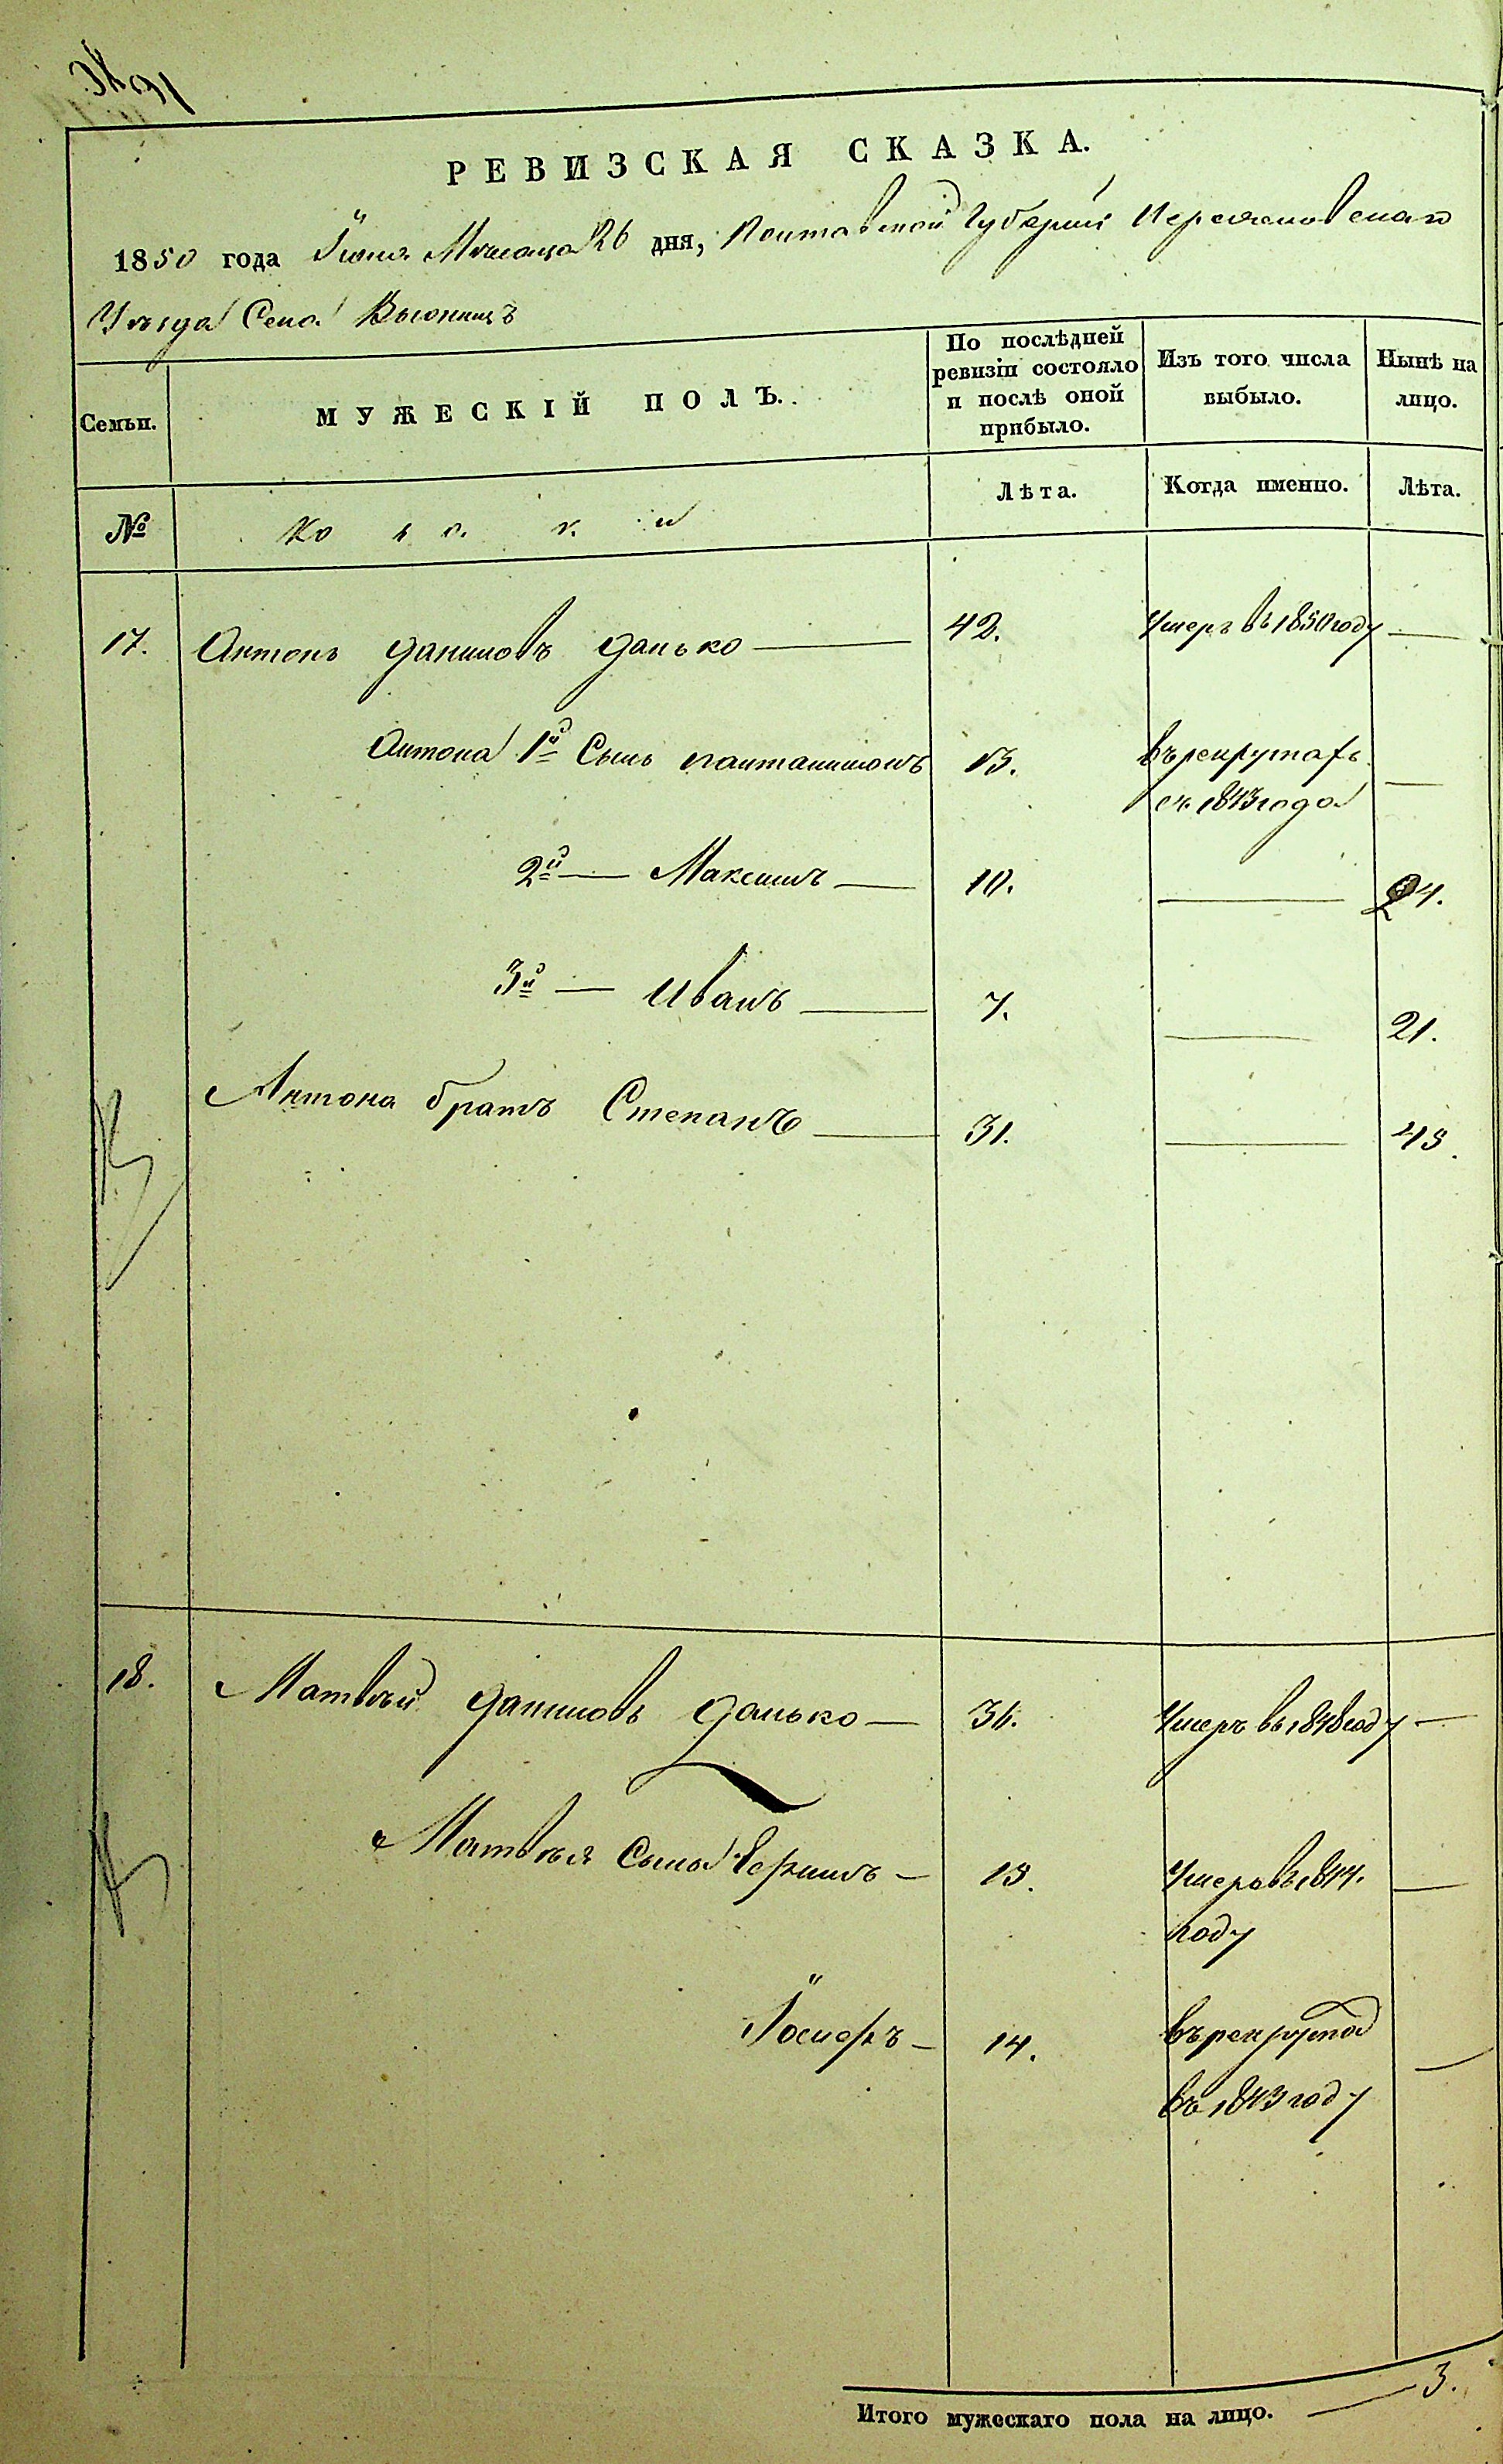 РЕВИЗСКАЯ СКАЗКА.
1850 года Іюня Мѣсяца 26 дня, Полтавской Губерніи Переяславскаго
Уѣзда Села Вьюнищъ
Семьи. МУЖЕСКІЙ ПОЛЪ.
По послѣдней
ревизіи состояло
и послѣ оной
прибыло.
Изъ того числа
выбыло.
Нынѣ на
лицо.
№ Козаки Лѣта. Когда именно. Лѣта.
17. Антонъ Даниловъ Данько — 42. Умеръ въ 1850 году —
Антона 1й Сынъ Пантелимонъ 13. въ рекрутахъ —
съ 1843 года
2й — Максимъ — 10. — 24.
3й — Иванъ — 7. — 21.
Антона братъ Степанъ — 31. — 45.
18. Матвѣй Даниловъ Данько — 36. Умеръ въ 1848 году —
Матвѣя Сыны — 15. Умеръ въ 1844. —
году
Іосифъ — 14. въ рекрута —
въ 1843 году
Итого мужескаго пола на лицо. — 3.